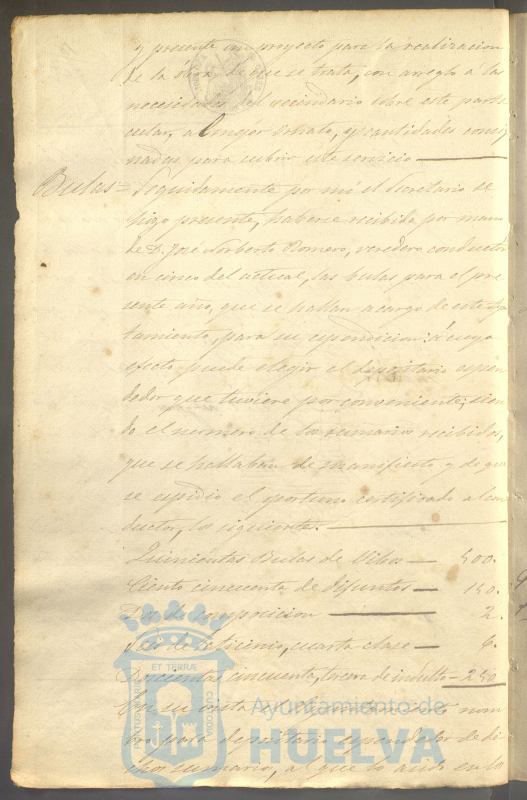 y presente un proyecto para la realizacion
de la obra de que se trata, con arreglo á las
necesidades del vecindario sobre este parti
cular, al mejor ornato, y cantidades consig
nadas para cubrir este servicio
Bulas = Seguidamente por mí el Secretario se
hizo presente, haberse recibido por mano
de D. José Norberto Romero, veredero conductor
en cinco del actual, las bulas para el pre
sente año, que se hallan a cargo de este Ayun
tamiento, para su espendicion: á cuyo
efecto puede elegir el depositario espen
dedor que tuviere por conveniente; sien
do el número de los sumarios recibidos,
que se hallaban de manifiesto y de que
se espidio el oportuno certificado al con
ductor, los siguientes.
Quinientas Bulas de Vivos — 500.
Ciento cincuenta de Difuntos — 150.
Dos de composicion — 2.
Seis de lacticinio, cuarta clase — 6.
Doscientas cincuenta, tercera de indulto — 250
En su vista el Ayuntamiento nom
bró para depositario espendedor de di
chos sumarios, al que lo
PORTUS MARIS ET TERRÆ CUSTODIA
Ayuntamiento de
HUELVA